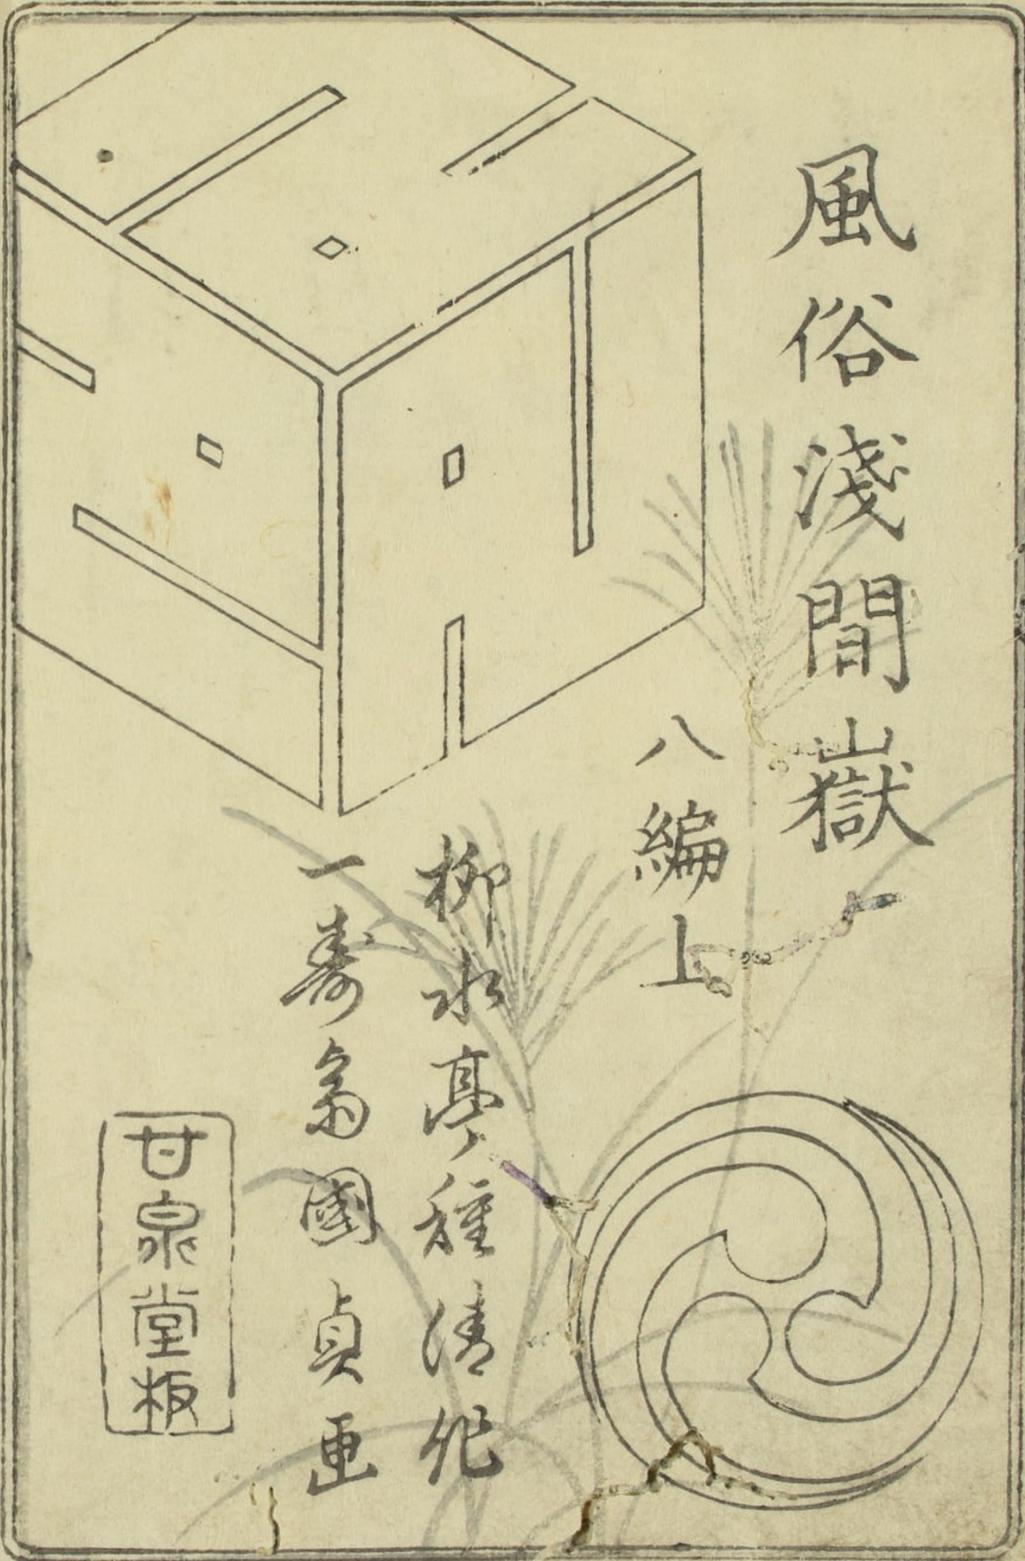 風俗淺間嶽
八編上
柳水亭種清作
一壽斎國貞画
甘泉堂板